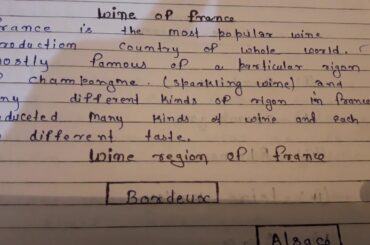 wine of france
rance is the most popular wine
roduction country of whole world.
ostly famous of a particular rigon
champangme. (sparkling wine) and
ny different kinds of rigon in france
oduceted many kinds of wine and each
different taste.
wine region of france
Bordeux
Alsace